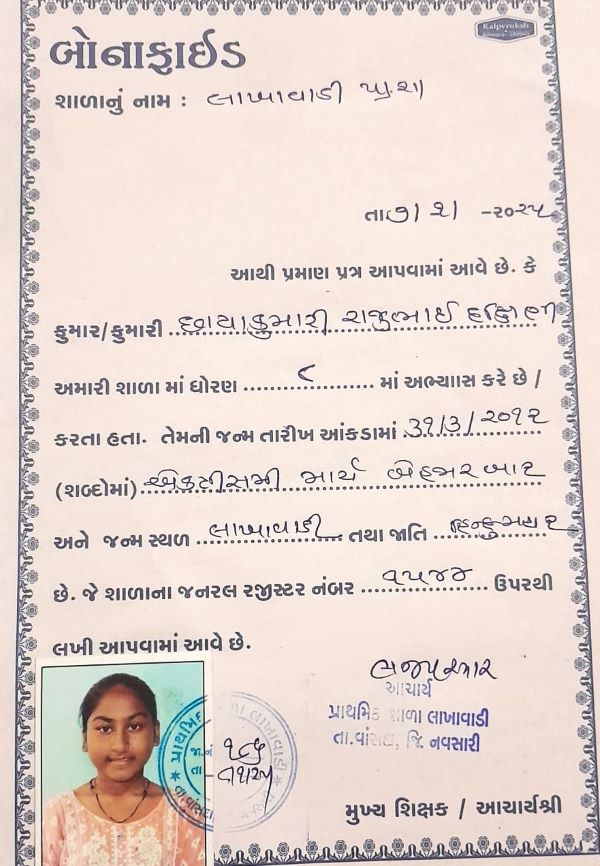 Kalpvruksh
બોનાફાઈડ
શાળાનું નામ : લાખાવાડી પ્રા.શા
તા ૭/૨/ -૨૦૨૫
આથી પ્રમાણ પત્ર આપવામાં આવે છે. કે
કુમાર/કુમારી છાયાકુમારી રાજુભાઈ
અમારી શાળા માં ધોરણ ૮ માં અભ્યાસ કરે છે /
કરતા હતા. તેમની જન્મ તારીખ આંકડામાં ૩૧/૩/૨૦૧૨
(શબ્દોમાં) એકત્રીસમી માર્ચ બેહજાર બાર
અને જન્મ સ્થળ લાખાવાડી તથા જાતિ
છે. જે શાળાના જનરલ રજીસ્ટર નંબર ૧૫૪૪ ઉપરથી
લખી આપવામાં આવે છે.
આચાર્ય
પ્રાથમિક શાળા લાખાવાડી
તા.વાંસદા, જિ. નવસારી
મુખ્ય શિક્ષક / આચાર્યશ્રી